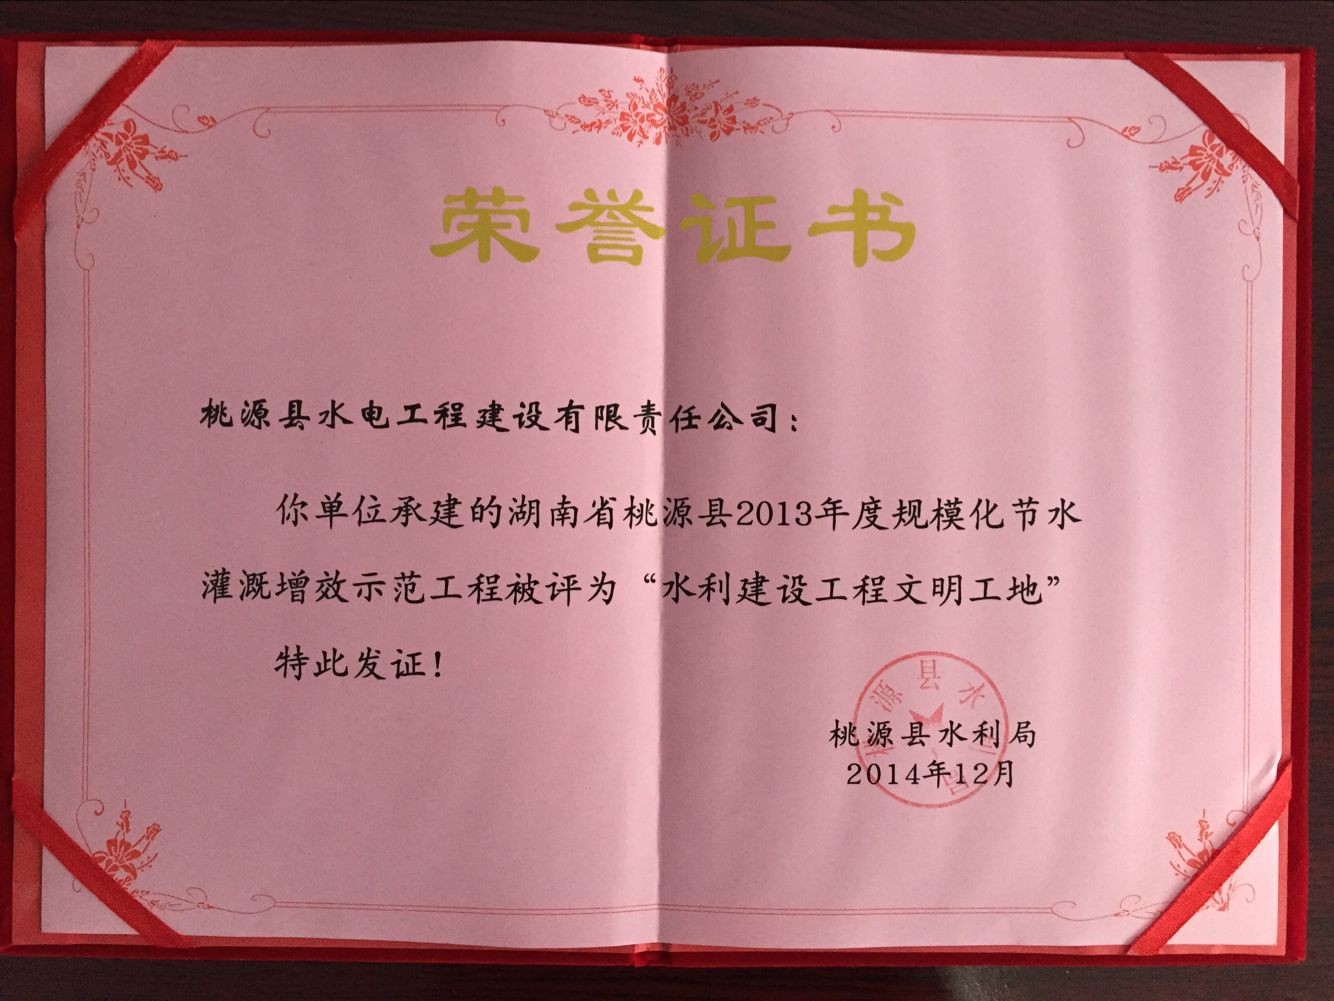 荣誉证书
桃源县水电工程建设有限责任公司：
你单位承建的湖南省桃源县2013年度规模化节水
灌溉增效示范工程被评为“水利建设工程文明工地”
特此发证！
桃源县水利局
2014年12月
桃源县水利局